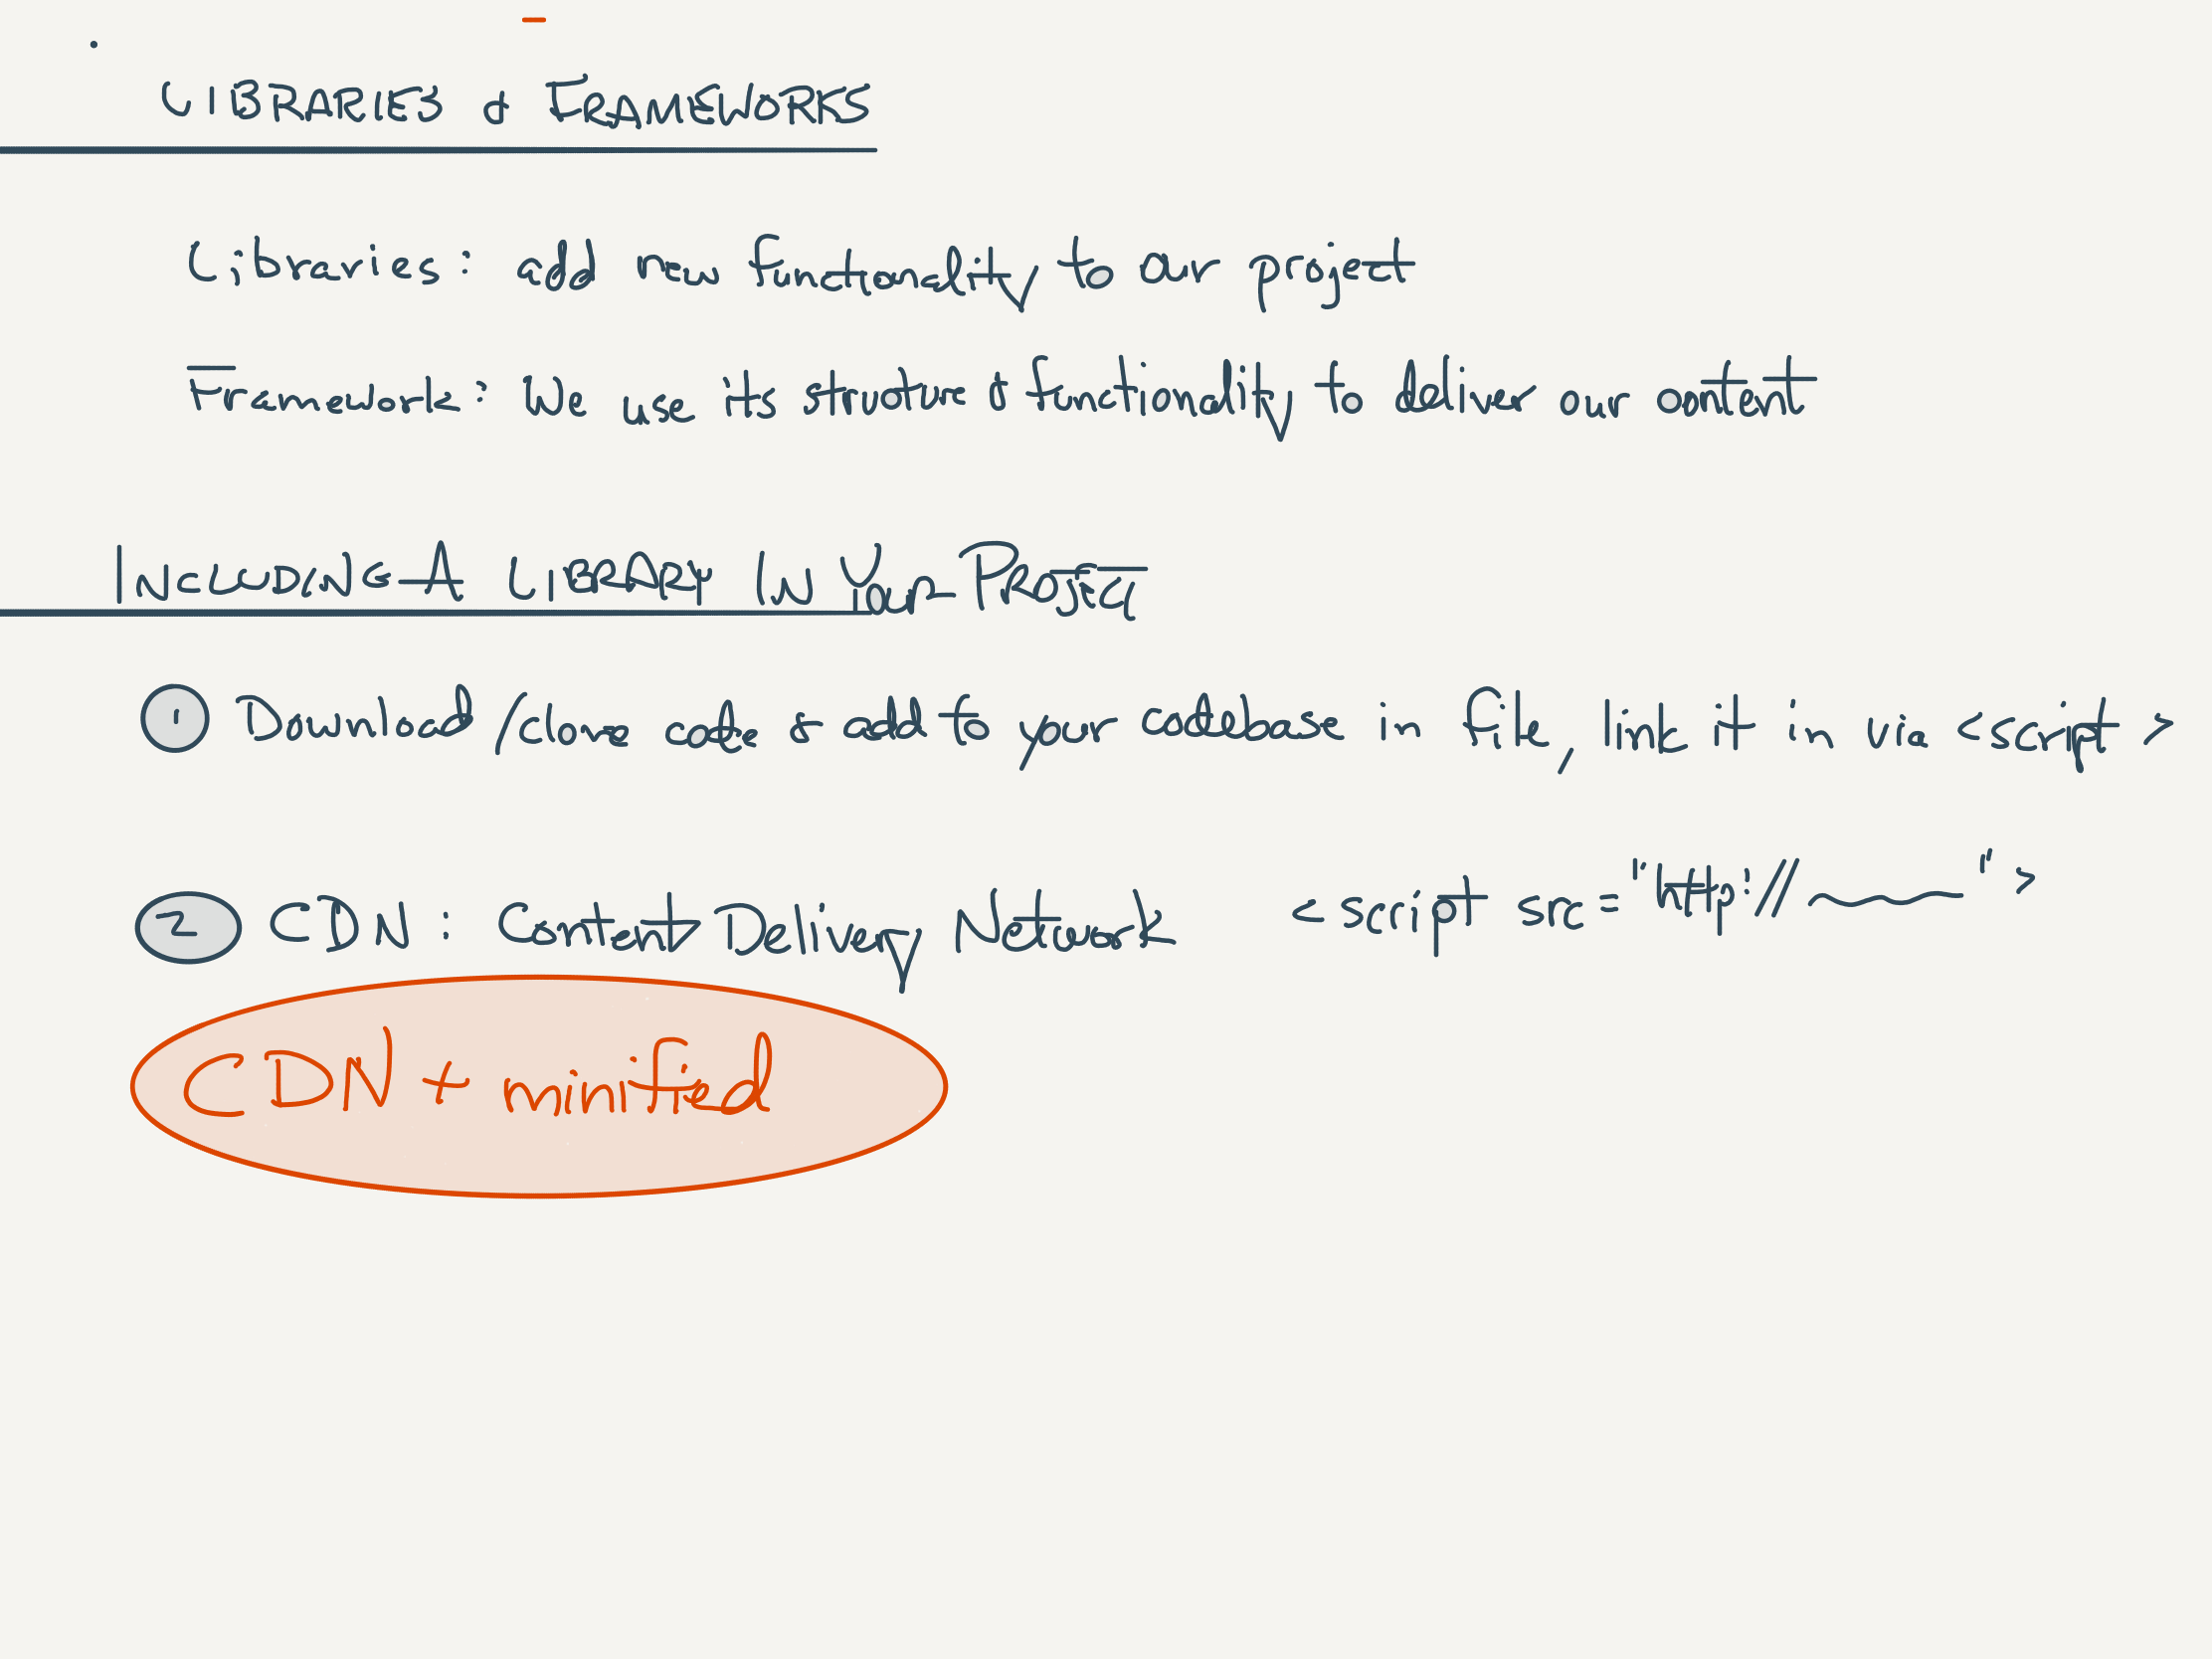 LIBRARIES & FRAMEWORKS
Libraries: add new functionality to our project
Frameworks: We use its structure & functionality to deliver our content
INCLUDING A LIBRARY IN YOUR PROJECT
1 Download/clone code & add to your codebase in file, link it in via <script>
2 CDN: Content Delivery Network <script src="http://~~~">
CDN + minified